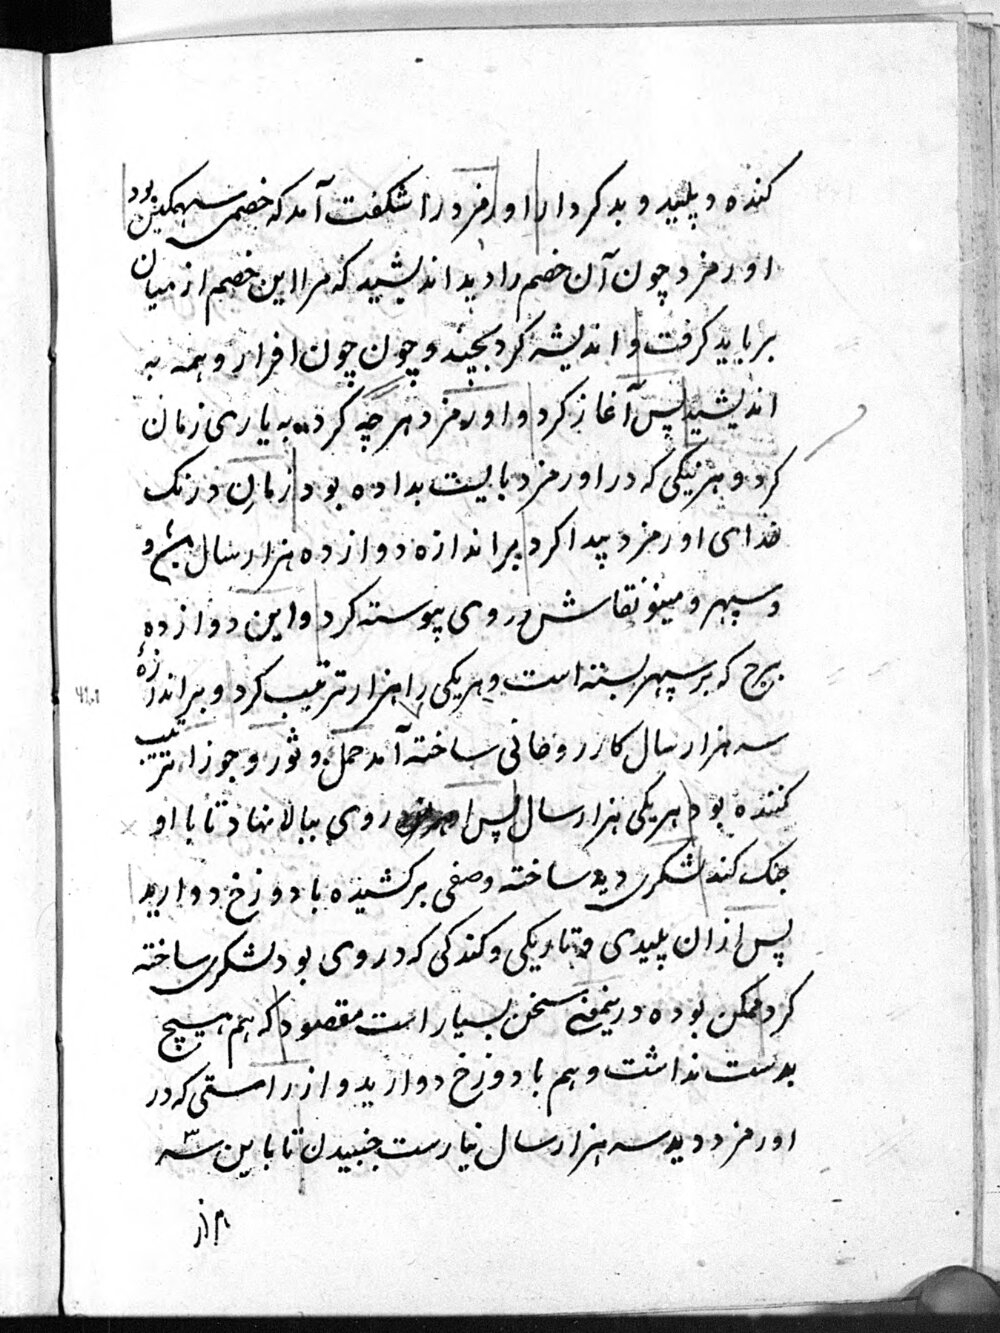 کنده و پلید و بدکردار اورمزد را شکفت آمد که خصمی سهمکین بود
اورمزد چون آن خصم را دید اندیشید که مرا این خصم از میان
برباید کرفت و اندیشه کرد بجید و چون چون افزار و همه به
اندیشید پس آغاز کرد و اورمزد هر چه کرد به یاری زمان
کرد و هر نیکی که در اورمزد بایست بداده بود زمان درنک
خدای اورمزد پیدا کرد بر اندازه دوازده هزار سال و
و سپهر و مینو نقاش روی پیوسته کرد و این دوازده
برج که بر سپهر بسته است و هریکی را هزار ترتیب کرد و بر اندازهٔ
سه هزار سال کار روحانی ساخته آمد حمل و ثور و جوزا ترتیب
کننده بود هریکی هزار سال پس روی ببالا نهاد تا با او
جنک کند لشکری دید ساخته و صفی برکشیده با دوزخ دوارید
پس از ان پلیدی و تاریکی و کندکی که در وی بود لشکری ساخته
کرد ممکن بوده درینمعنی سخن بسیار است مقصود که هم هیچ
بدست نداشت و هم با دوزخ دوارید و از راستی که در
اورمزد دید سه هزار سال نیارست جنبیدن تا باین سه